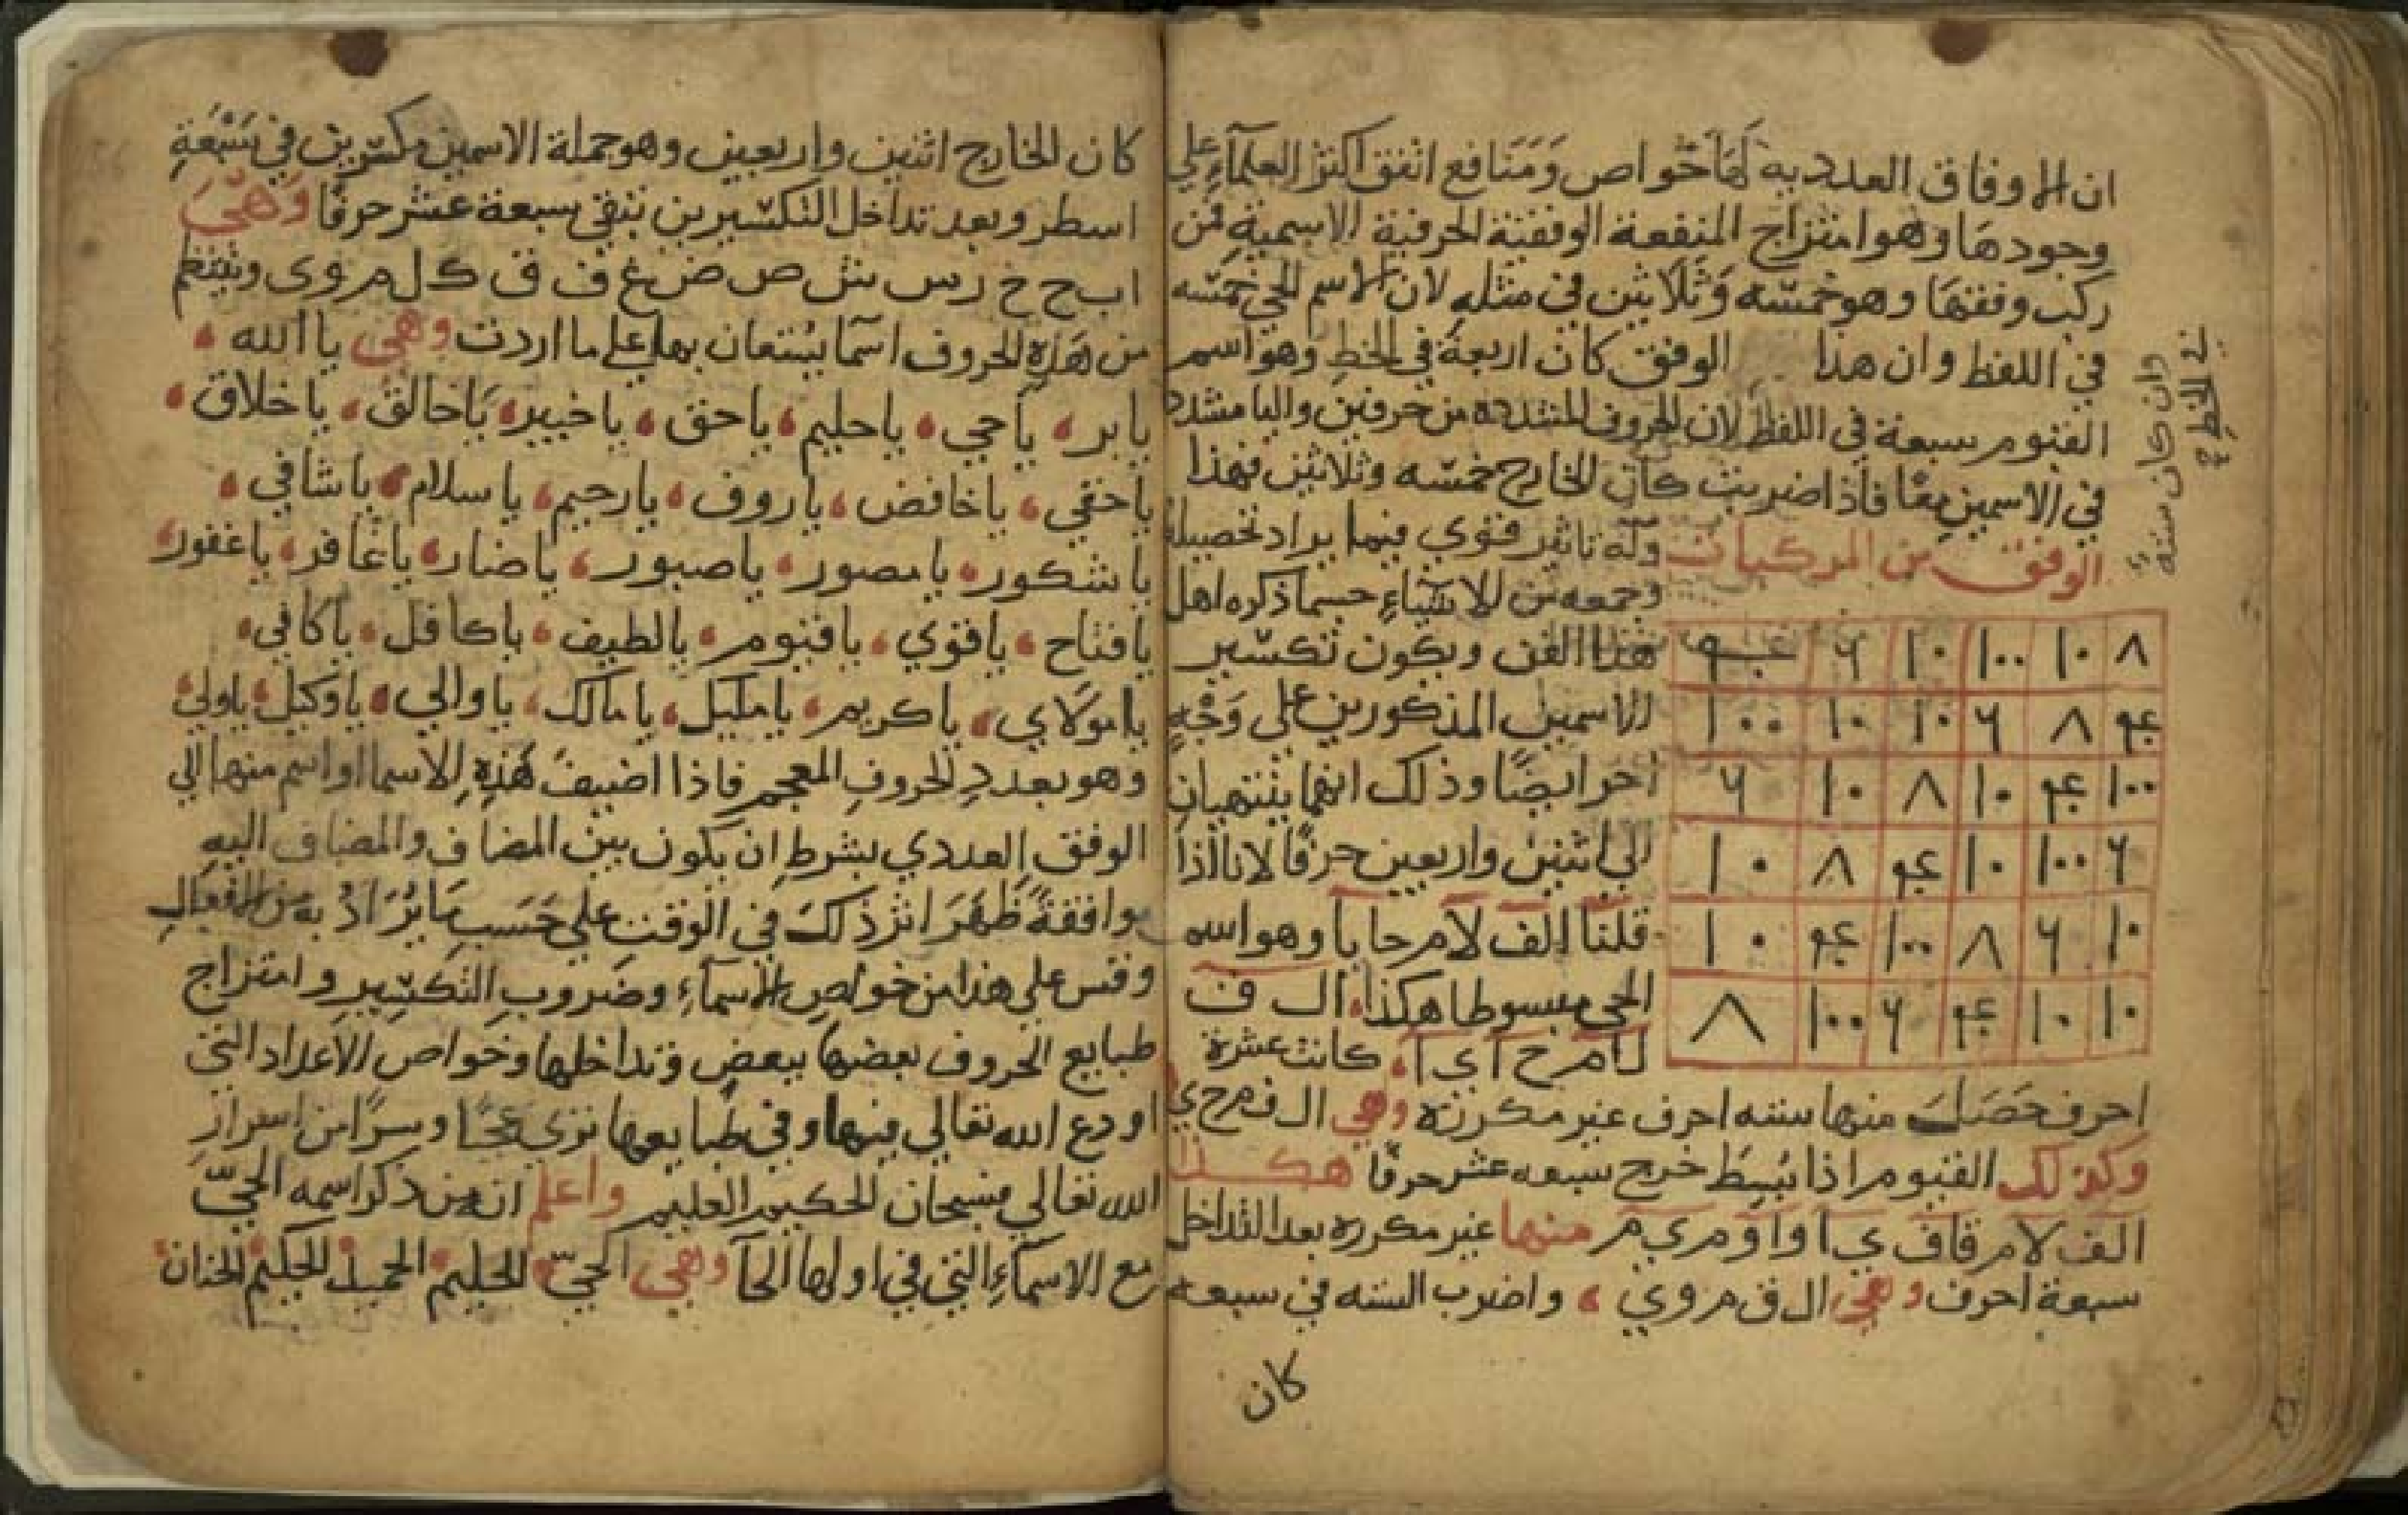 ان الاوفاق العددية لها خواص ومنافع اتفق اكثر العلماء علي
وجودها وهو امتزاج المنفعة الوفقية الحرفية الاسمية فمن
ركب وفقها وهو خمسه وثلاثين في مثله لان الاسم الحي خمسه
في اللفظ وان هذا الوفق كان اربعة في الخط وهو اسم
القيوم سبعة في اللفظ لان الحروف المشدده من حرفين واليا مشدد
في الاسمين معًا فاذا ضربت كان الخارج خمسه وثلاثين فهذا
الوفق من المركبات وله تاثير قوي فيما يراد تحصيله
وجمعه من الاشياء حسبما ذكره اهل
هذا الفن ويكون تكسير
الاسمين المذكورين على وَجْهٍ
اخر ايضًا وذلك انهما ينتهيان
الي اثنين واربعين حرفًا لانا اذا
قلنا الف لام حا يا وهو اسمه
الحي مبسوطا هكذا ا ل ف
ل ا م ح ا ي ا كانت عشرة
٨ ١٠ ١٠٠ ١٠ ٦
٨ ٦ ١٠ ١٠ ١٠٠
١٠٠ ١٠ ٨ ١٠ ٦
٦ ١٠٠ ١٠ ٨ ١٠
١٠ ٦ ٨ ١٠٠ ١٠
١٠ ١٠ ٦ ١٠٠ ٨
احرف حَصَلَ منها سته احرف غير مكررة وهي ال ف م ح ي
وكذلك القيوم اذا بُسِطَ خرج سبعه عشر حرفًا هكذا
الف لام قاف ي ا واو م ي م منها غير مكرره بعد التداخل
سبعة احرف وهي ال ف ق م و ي واضرب السته في سبعه
كان
وان كان ستة
في الخط صح
كان الخارج اثنين واربعين وهو جملة الاسمين مكسرين في سَبْعَةِ
اسطر وبعد تداخل التكسيرين بنقي سبعة عشر حرفًا وَهْيَ
ا ب ح خ ر س ش ص ض غ ف ق ك ل م و ى وينتظم
من هَذِهِ الحروف اسما يُستعان بها على ما اردت وهي يا الله
يا بر يا حي يا حليم يا حق يا خبير يا خالق يا خلاق
يا حفي يا خافض يا روف يا رحيم يا سلام يا شافي
يا شكور يا مصور يا صبور يا ضار يا غافر يا غفور
يا فتاح يا قوي يا قيوم يا لطيف يا كافل يا كافي
يا مولاي يا كريم يا مليك يا مالك يا والي يا وكيل يا ولي
وهو بعدد الحروف المعجم فاذا اضيف هَذِهِ الاسما او اسم منها الي
الوفق العددي بشرط ان يكون بين المضاف والمضاف اليه
موافقةً ظَهَرَ اثر ذلك في الوقت علي حَسَبِ مَا يُرَادُ به من الافعال
وقس علي هذا من خواص الاسماء وضروب التكسير وامتزاج
طبايع الحروف بعضها ببعض وتداخلها وخواص الاعداد التي
اودع الله تعالي فيها وفي طبايعها تري عجبًا وسرًا من اسرار
الله تعالي فسبحان الحكيم العليم واعلم انه من ذكر اسمه الحيّ
مع الاسماء التي في اولها الحا وهي الحيّ الحليم الحميد الحكيم الحنان